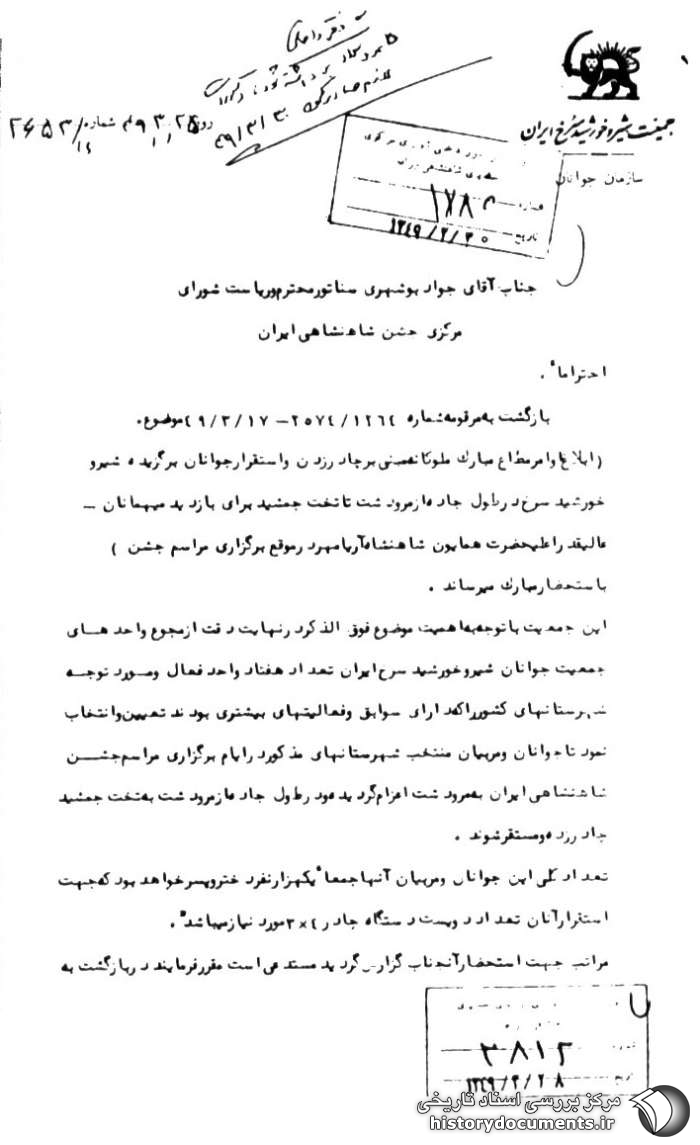 جمعیت شیر و خورشید سرخ ایران
سازمان جوانان
شماره
۱۷۸۳
تاریخ ۱۳٤۹/۳/۳۰
جناب آقای جواد بوشهری سناتور محترم و ریاست شورای
مرکزی جشن شاهنشاهی ایران
احتراماً .
بازگشت به مرقومه شماره ۱۲٦٤/۲۵۷٤ – ٤۹/۳/۱۷ موضوع .
( ابلاغ اوامر مطاع مبارک ملوکانه مبنی بر چادر زدن و استقرار جوانان برگزیده شیر و
خورشید سرخ در طول جاده از مرودشت تا تخت جمشید برای بازدید میهمانان –
عالیقدر اعلیحضرت همایون شاهنشاه آریامهر در موقع برگزاری مراسم جشن )
باستحضار مبارک میرساند .
این جمعیت با توجه به اهمیت موضوع فوق الذکر در نهایت دقت از مجموع واحد هـای
جمعیت جوانان شیر و خورشید سرخ ایران تعداد هفتاد واحد فعال و مـورد توجـه
شهرستانهای کشور را که دارای سوابق و فعالیتهای بیشتری بودند تعیین و انتخاب
نمود تا جوانان و مربیان منتخب شهرستانهای مذکور در ایام برگزاری مراسم جشـن
شاهنشاهی ایران به مرودشت اعزام گردیده و در طول جاده از مرودشت به تخت جمشید
چادر زده و مستقر شوند .
تعداد کلی این جوانان و مربیان آنها جمعاً یکهزار نفر دختر و پسر خواهد بود که جهت
استقرار آنان تعداد دویست دستگاه چادر ٤×۳ مورد نیاز میباشد .
مراتب جهت استحضار آنجناب گزارش گردید مستدعی است مقرر فرمایند در بازگشت به
۳۸۱۲
۱۳٤۹/۳/۲۸
مرکز بررسی اسناد تاریخی
historydocuments.ir